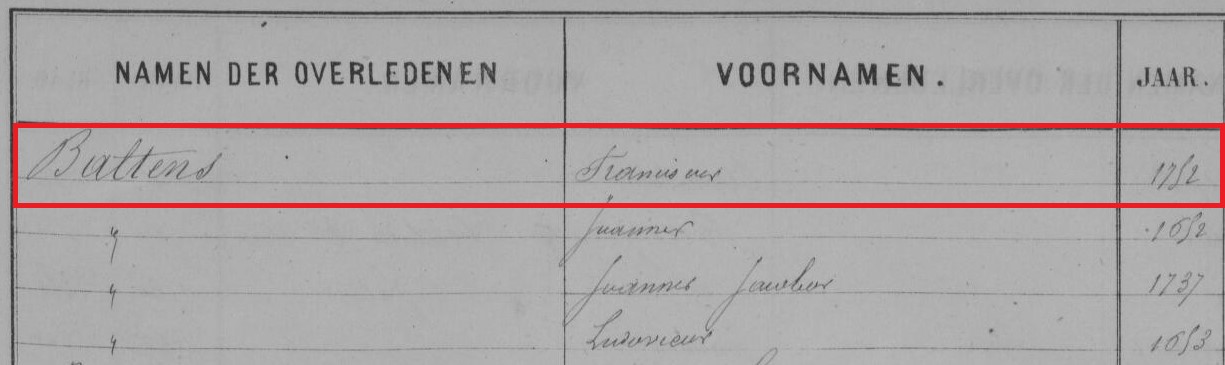 NAMEN DER OVERLEDENEN VOORNAMEN. JAAR.
Battens Franciscus 1752
" Joannes 1652
" Joannes Jacobus 1737
" Ludovicus 1653